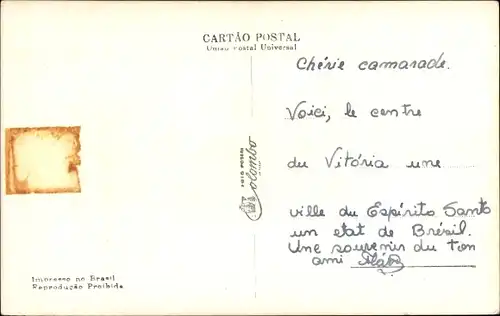 CARTÃO POSTAL
União Postal Universal
Chérie camarade.
Voici, le centre
du Vitória une
ville du Espírito Santo
un etat de Brésil.
Une souvenir du ton
ami
Colombo
Impresso no Brasil
Reprodução Proibida